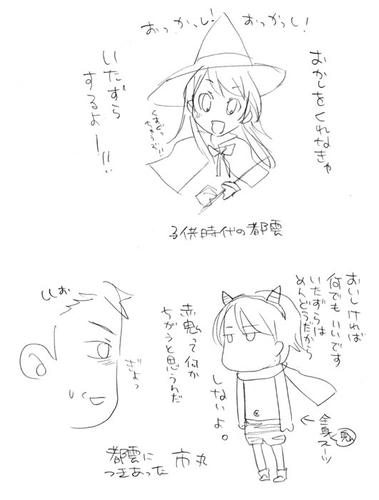 おっかっし!
おっかっし!
おかしをくれなきゃ
いたずら
するよー!!
子供時代の都雲
おいしければ
何でもいいです
いたずらは
めんどうだから
しないよ。
赤鬼って何か
ちがうと思うんだ
全身スーツ
鬼
ぎょっ
都雲に
つきあった
市丸